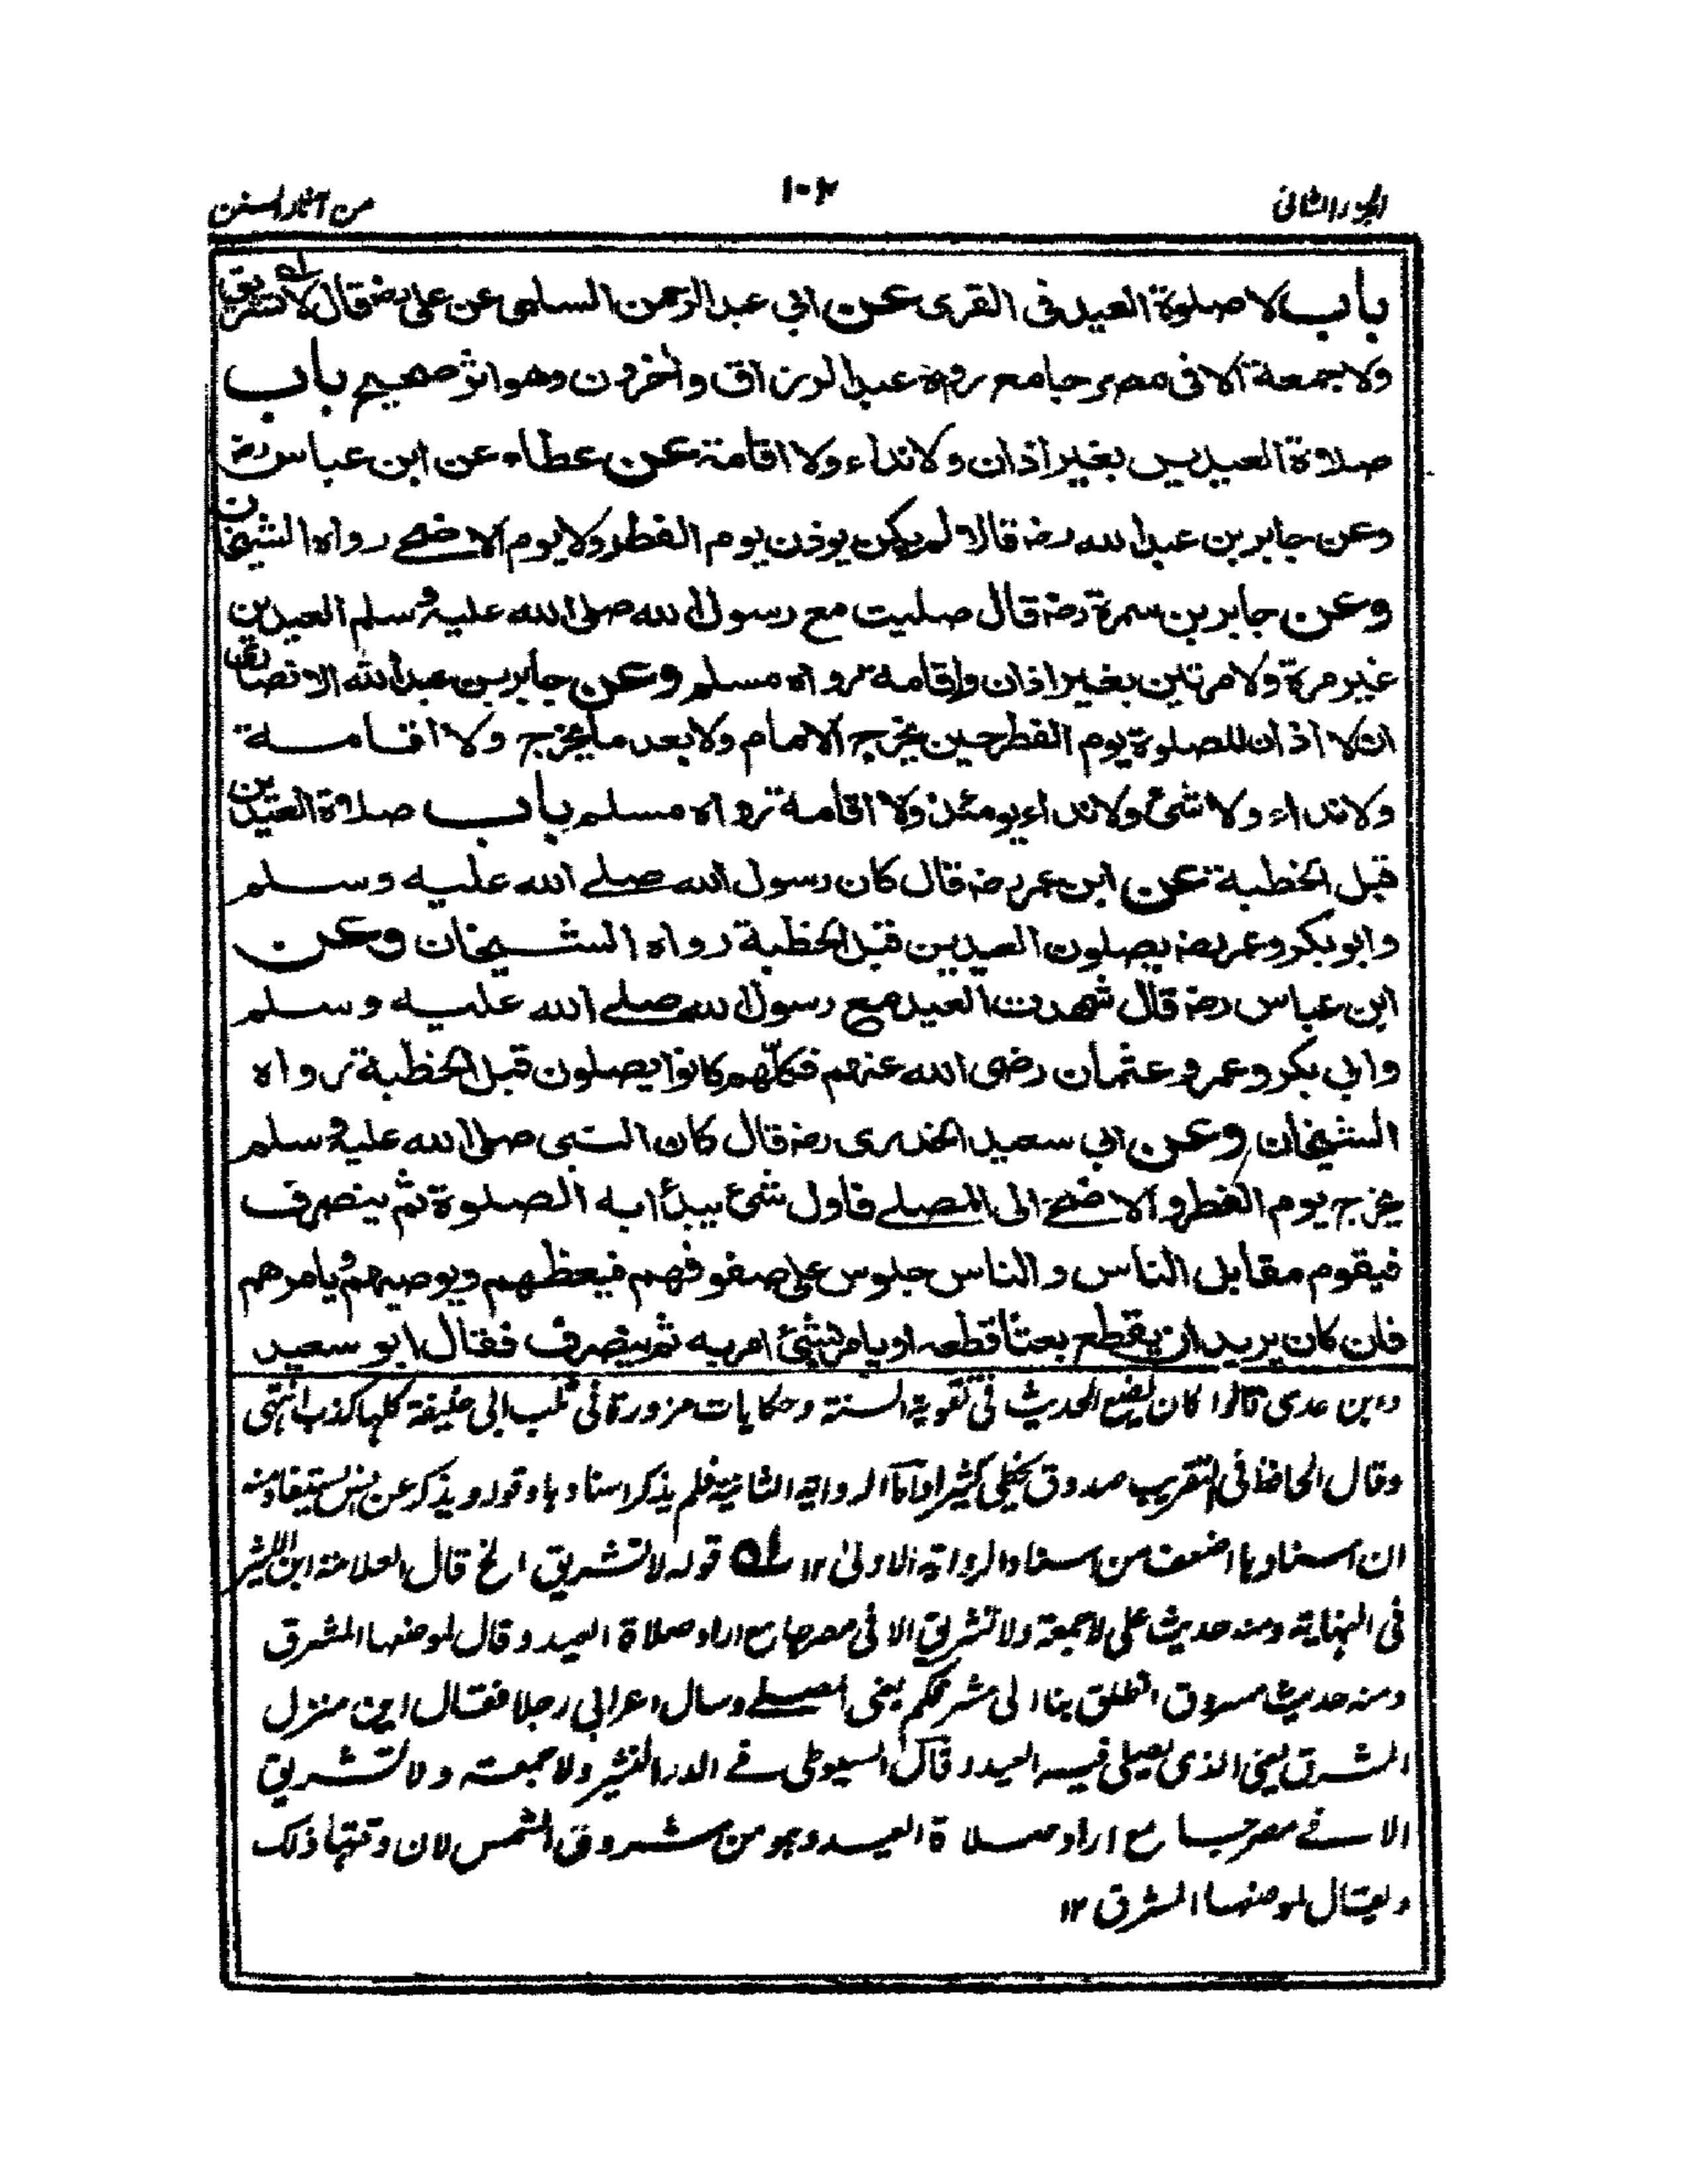 الجزء الثانى
١٠٢
من آثار السنن
باب لا صلوة العيد فى القرى عن ابي عبد الرحمن السلمى عن على رضہ قال لا تشريق
ولا جمعة الا فى مصر جامع رواه عبد الرزاق واخرون وهو اثر صحيح باب
صلاة العيدين بغير اذان ولا نداء ولا اقامة عن عطاء عن ابن عباس رضہ
وعن جابر بن عبد الله رضہ قالا لم يكن يوذن يوم الفطر ولا يوم الاضحے رواه الشيخان
وعن جابر بن سمرة رضہ قال صليت مع رسول الله صلى الله عليه وسلم العيدين
غير مرة ولا مرتين بغير اذان ولا اقامة رواه مسلم وعن جابر بن عبد الله الانصارى
ان لا اذان للصلوة يوم الفطر حين يخرج الامام ولا بعد ما يخرج ولا اقامة
ولا نداء ولا شئ ولا نداء يومئذ ولا اقامة رواه مسلم باب صلاة العيدين
قبل الخطبة عن ابن عمر رضہ قال كان رسول الله صلے الله عليه وسلم
وابو بكر وعمر رضہ يصلون العيدين قبل الخطبة رواه الشيخان وعن
ابن عباس رضہ قال شهدت العيد مع رسول الله صلے الله عليه وسلم
وابي بكر وعمر وعثمان رضى الله عنهم فكلهم كانوا يصلون قبل الخطبة رواه
الشيخان وعن ابي سعيد الخدرى رضہ قال كان النبى صلى الله عليه وسلم
يخرج يوم الفطر والاضحے الى المصلے فاول شئ يبدأ به الصلوة ثم ينصرف
فيقوم مقابل الناس والناس جلوس على صفوفهم فيعظهم ويوصيهم ويامرهم
فان كان يريد ان يقطع بعثا قطعه او يامر بشئ امر به ثم ينصرف فقال ابو سعيد
وابن عدى قالوا كان يضع الحديث فى تقوية السنة وحكايات مزورة فى ثلب ابى حنيفة كلها كذب انتهى
وقال الحافظ فى التقريب صدوق يخطى كثيرا واما الرواية الثانية فلم يذكر اسنادها وقوله ويذكر عن يستفاد منه
ان اسنادها اضعف من اسناد الرواية الاولىٰ ١٢ ٥١ قوله لا تشريق الخ قال العلامة ابن الاثير
فى النهاية ومنه حديث على لا جمعة ولا تشريق الا فى مصر جامع اراد صلاة العيد وقال لموضعها المشرق
ومنه حديث مسروق انطلق بنا الى مشرقكم يعنى المصلے وسال اعرابى رجلا فقال اين منزل
المشرق يعنى الذى يصلى فيه العيد وقال السيوطى فے الدر النثير ولا جمعة ولا تشريق
الا فے مصر جامع اراد صلاة العيد وهو من شروق الشمس لان وقتها ذلك
ويقال لموضعها المشرق ١٢